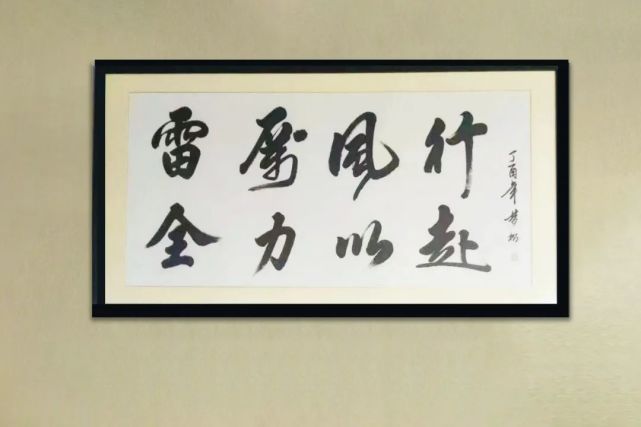 雷厲風行
全力以赴
丁酉年